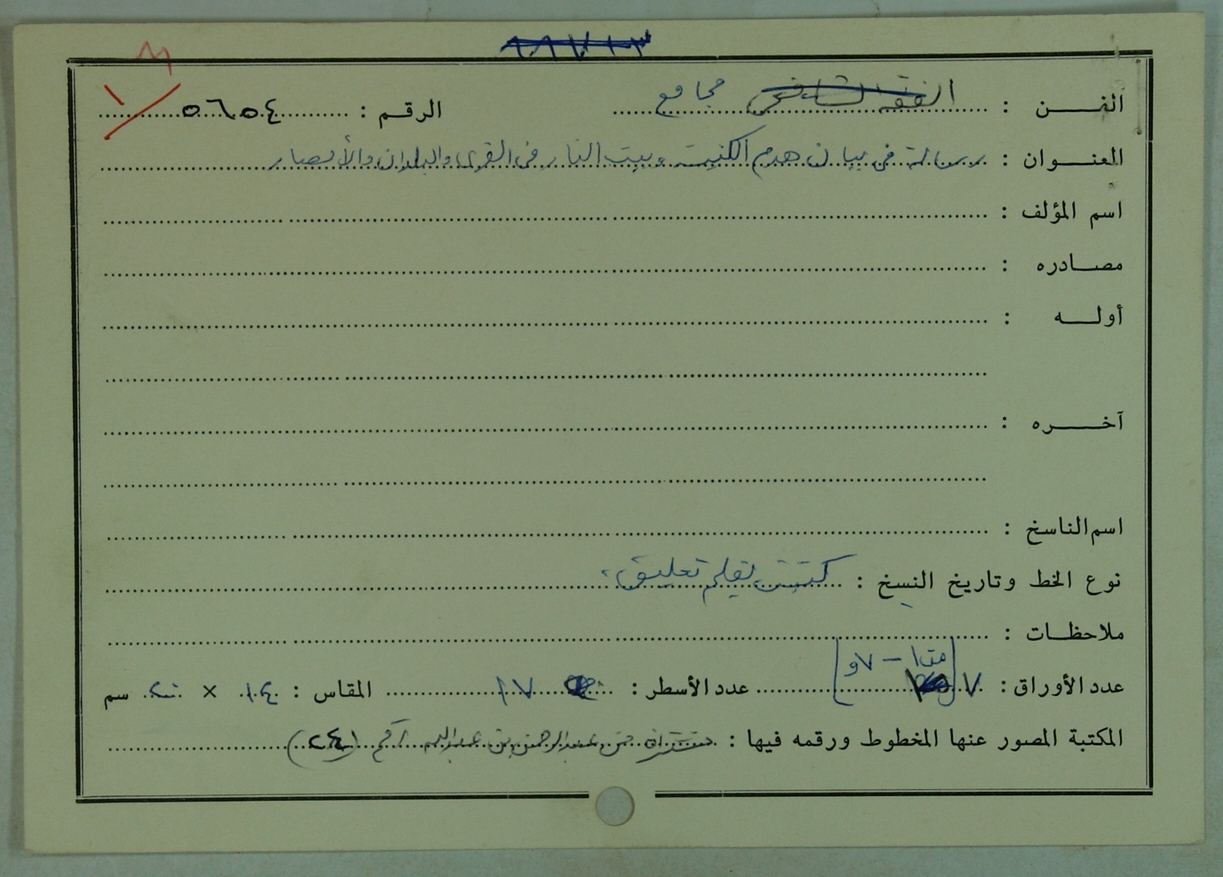 الفن : مجاميع الرقم : ٥٦٥٤ / ١
العنوان : رسالة في بيان هدم الكنيسة وبيت النار في القرى والبلدان والأمصار
اسم المؤلف :
مصادره :
أوله :
آخره :
اسم الناسخ :
نوع الخط وتاريخ النسخ : كتبت بقلم تعليق
ملاحظات :
عدد الأوراق : ٧ [من ١ - ٧و] عدد الأسطر : ١٧ المقاس : ١٤ × ٢٠ سم
المكتبة المصور عنها المخطوط ورقمه فيها : مشتراه من عبدالرحمن بن عبدالله رقم (٢٤)